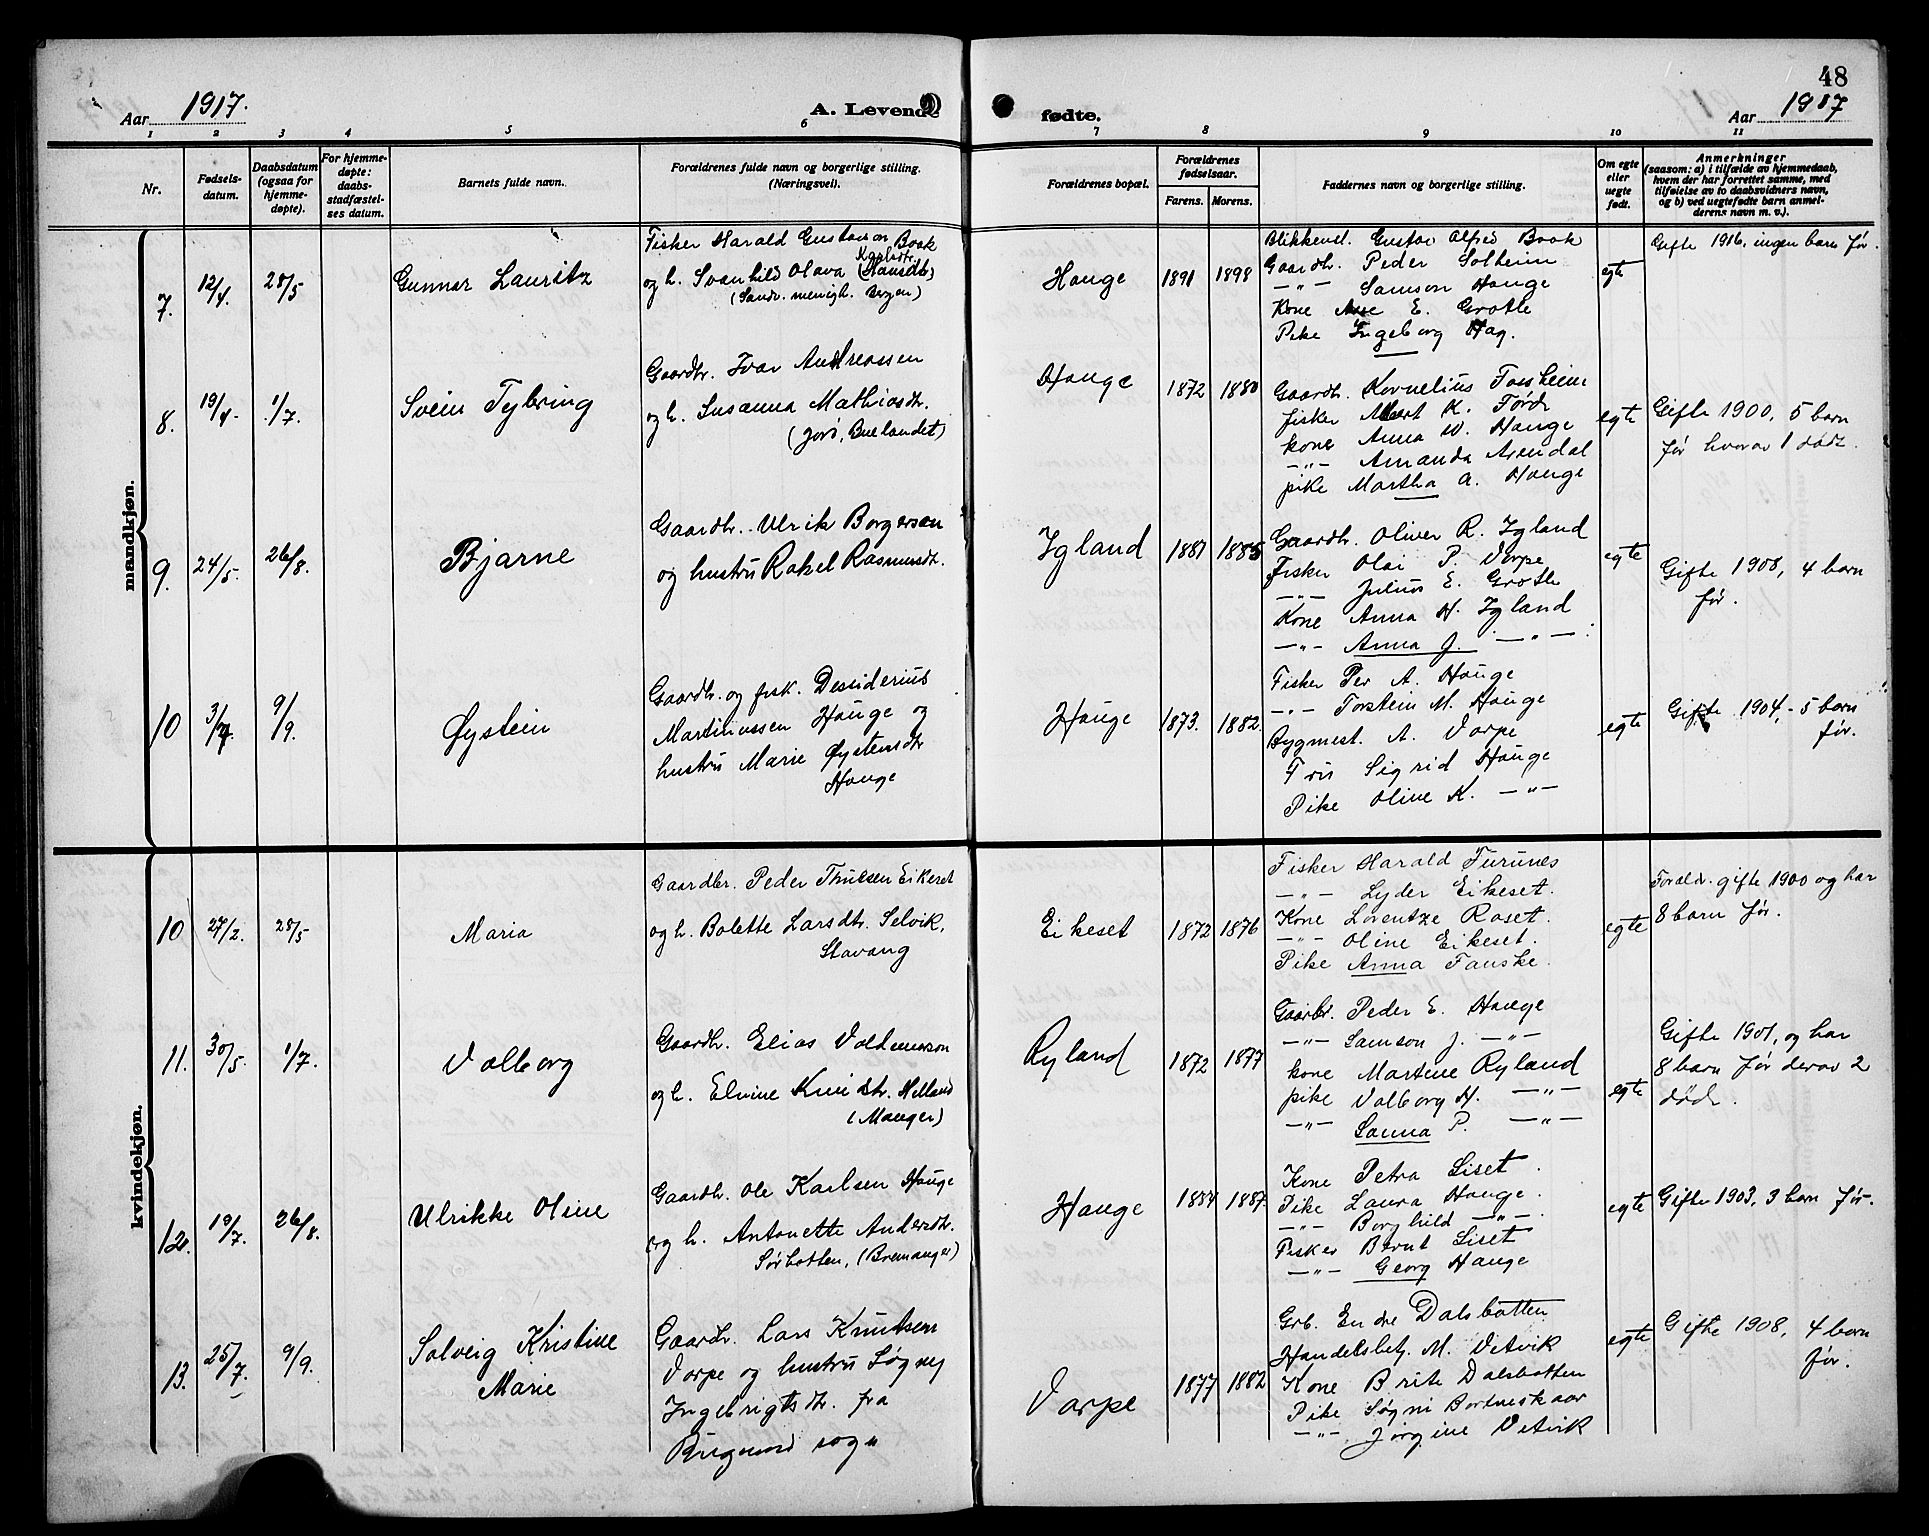 48
Aar 1917.
A. Levende
fødte.
Aar 1917
1 2 3 4 5 6 7 8 9 10 11
Nr.
Fødsels-
datum.
Daabsdatum
(ogsaa for
hjemme-
døpte).
For hjemme-
døpte:
daabs-
stadfæstel-
ses datum.
Barnets fulde navn.
Forældrenes fulde navn og borgerlige stilling.
(Næringsvei).
Forældrenes bopæl.
Forældrenes
fødselsaar.
Farens. Morens.
Faddernes navn og borgerlige stilling.
Om egte
eller
uegte
født.
Anmerkninger
(saasom: a) i tilfælde av hjemmedaab,
hvem der har forrettet samme, med
tilføielse av to daabsvidners navn,
og b) ved uegtefødte barn anmel-
derens navn m. v.).
mandkjøn.
7. 12/4. 28/5 Gunnar Lauritz
Fisker Harald Gustavson Book
Karlsdtr.
og h. Svanhild Olava
(Sandv. menigh. Bergen)
Hauge 1891 1898
Blikkensl. Gustav Alfred Book
Gaardbr. Peder Solheim
—"— Samson Hauge
Kone Ane E. Grotle
Pike Ingeborg Hag.
egte
Gifte 1916, ingen barn før.
8. 19/4. 1/7. Svein Tybring
Gaardbr. Ivar Andreassen
og h. Susanna Mathiasdtr.
(Jorø, Buelandet)
Hauge 1872 1880
Gaardbr. Kornelius Forsheim
fisker Albert K. Førde
kone Anna W. Hauge
—"— Amanda Arendal
pike Martha A. Hauge
egte
Gifte 1900, 5 barn
før hvorav 1 død.
9. 24/5. 26/8. Bjarne
Gaardbr. Ulrik Borgersen
og hustru Rakel Rasmusdtr.
Igland 1881 1885
Gaardbr. Oliver R. Igland
Fisker Olai P. Varpe
—"— Julius E. Grotle
Kone Anna H. Igland
—"— Anna J. —"—
egte
Gifte 1908, 4 barn
før.
10 3/7. 9/9. Øystein
Gaardbr. og fisk. Dessiderius
Martinussen Hauge og
hustru Marie Øystensdtr
Hauge
Hauge 1873. 1882.
Fisker Per A. Hauge
—"— Torstein M. Hauge
Bygmest. A. Varpe
Frue Sigrid Hauge
Pike Oline K. —"—
egte
Gifte 1904, 5 barn
før.
kvindekjøn.
10 27/2. 28/5 Maria
Gaardbr. Peder Thuesen Eikeset
og h. Bolette Larsdtr. Selvik,
Stavang
Eikeset 1872 1876
Fisker Harald Furunes
—"— Lyder Eikeset.
Kone Lorentze Roset.
—"— Oline Eikeset.
Pike Anna Fauske.
egte
Forældr. gifte 1900 og har
8 barn før.
11. 30/5. 1/7. Valborg
Gaardbr. Elias Valdemarson
og h. Elvine Knudsdtr. Helland
(Manger)
Ryland 1872 1877
Gaardbr. Peder E. Hauge
—"— Samson J. —"—
kone Martene Ryland
pike Valborg H. —"—
—"— Sanna P. —"—
egte
Gifte 1901, og har
8 barn før derav 2
døde.
12. 19/7. 26/8. Ulrikke Oline
Gaardbr. Ole Karlsen Hauge
og h. Antonette Andersdtr.
Sørbotten, (Bremanger)
Hauge 1884 1887.
Kone Petra Liset.
Pike Laura Hauge.
—"— Borghild —"—.
Fisker Bernt Liset
—"— Georg Hauge
egte
Gifte 1903, 3 barn før.
13. 25/7. 9/9. Solveig Kristine
Marie
Gaardbr. Lars Knutsen
Varpe og hustru Søgny
Ingebrigtsdtr. fra
sogn
Varpe 1877 1882
Grb. Endre Dalsbotten
Handelsbetj. M. Vetvik
Kone Brite Dalsbotten
Pike Søgni Bortneskaar
—"— Jørgine Vetvik
egte
Gifte 1908, 4 barn
før.